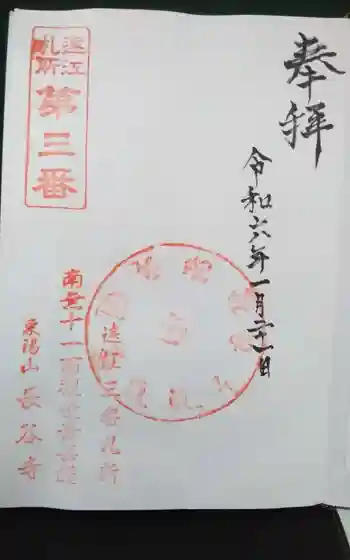 奉拝
令和六年一月二十一日
遠江三番札所
南無十一面観世音菩薩
東陽山 長谷寺
遠江
札所
第三番